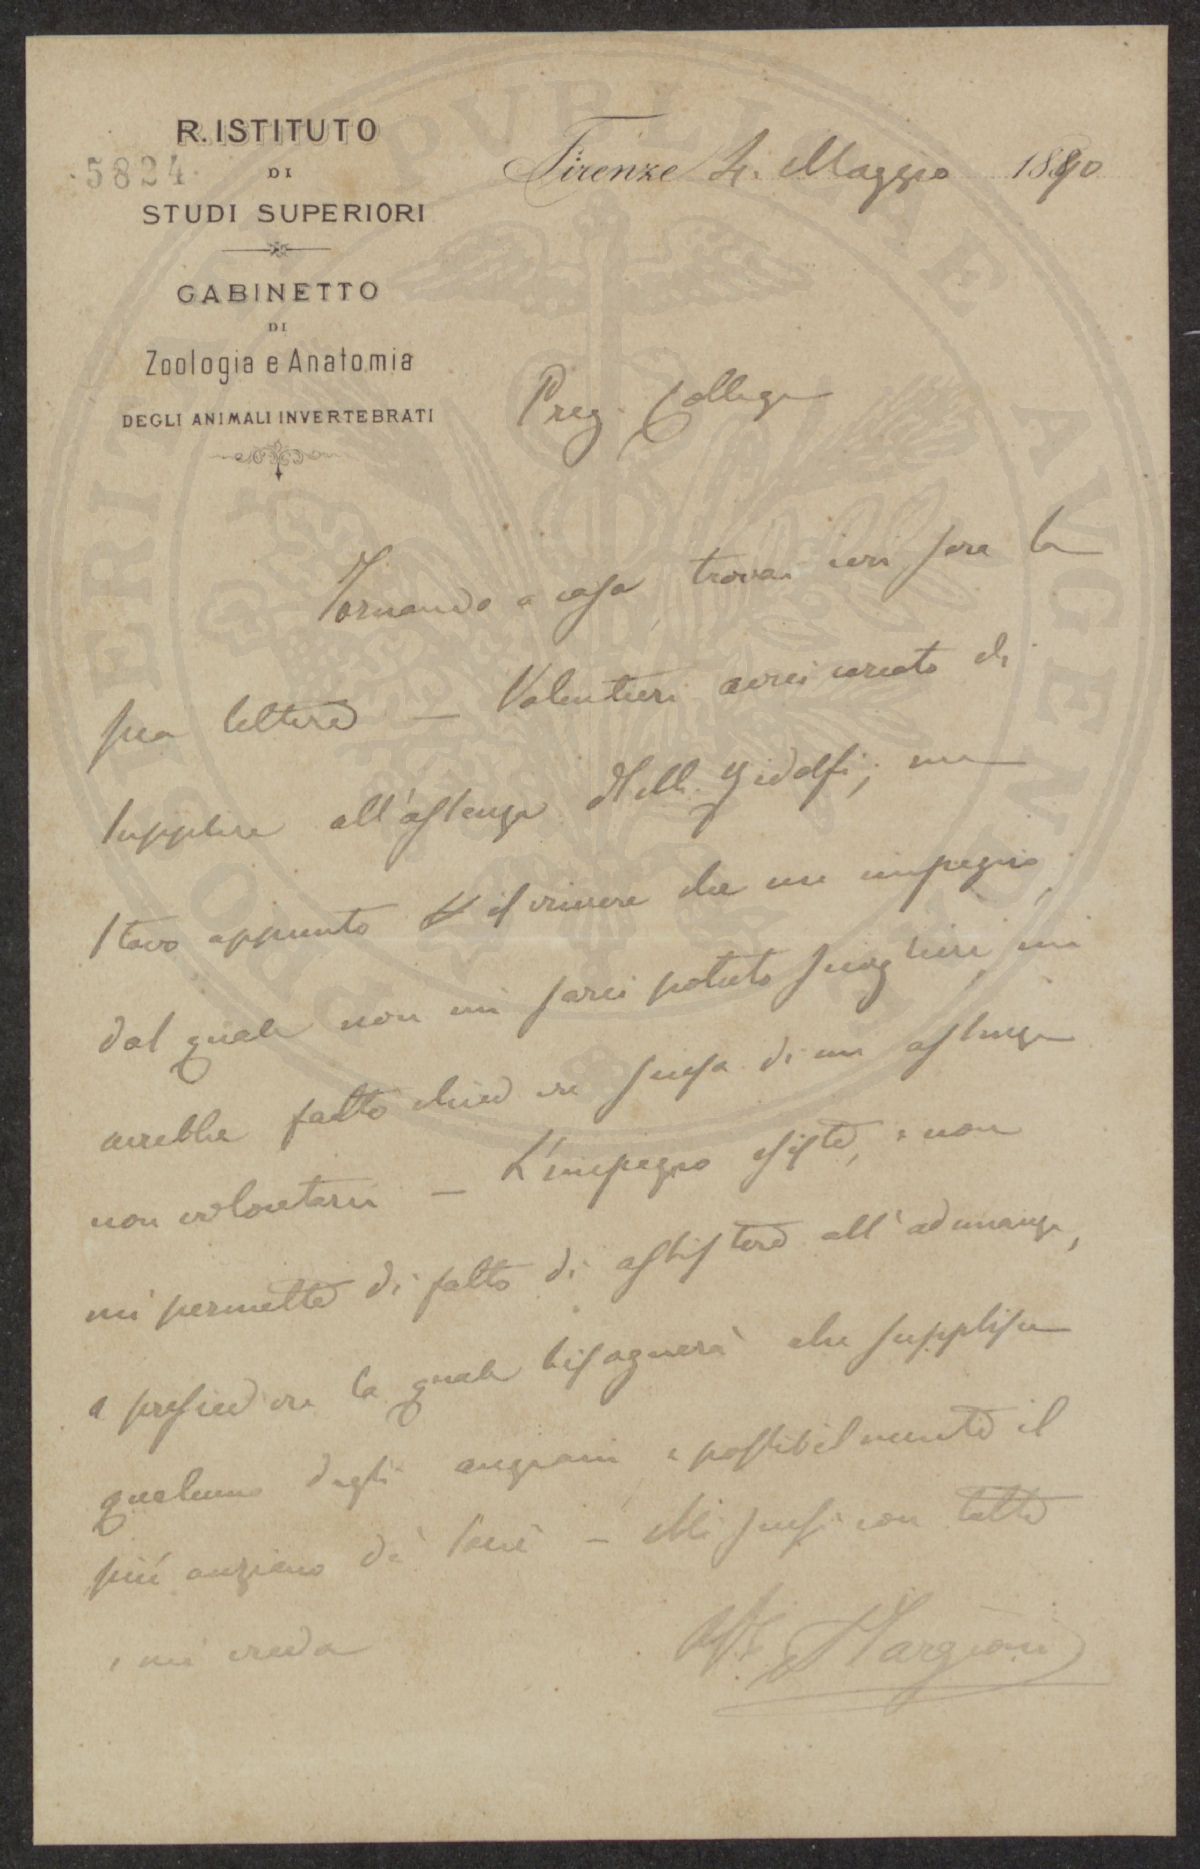 R. ISTITUTO
DI
STUDI SUPERIORI
5824
GABINETTO
DI
Zoologia e Anatomia
DEGLI ANIMALI INVERTEBRATI
Firenze 4. Maggio 1890
Preg. Collega
Tornando a casa, trovai ieri sera la
sua lettera — Volentieri avrei cercato di
supplire all'assenza del Ridolfi; ma
stavo appunto scrivere che un impegno,
dal quale non mi sarei potuto sciogliere, mi
avrebbe fatto chiedere scusa di un assenza
non volontaria — L'impegno esiste, e non
mi permette di fatto di assistere all'adunanza,
a presiedere la quale bisognerà che supplisca
qualcuno degli anziani, e possibilmente il
più anziano dè soci — Mi scusi con tutti
e mi creda
Aff. Targioni